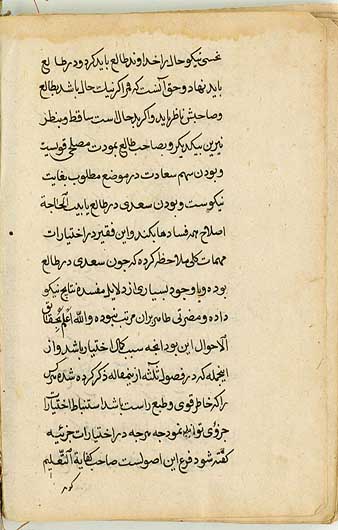 نحسی نیکو حال را خداوند طالع باید کرد و در طالع
باید نهاد و حق آنست که قمر اگر نیک حال باشد بطالع
و صاحبش ناظر اید و اگر بد حال است ساقط و بنظر
نیرین بیکدیگر و بصاحب طالع بمودت مصلحی قویست
و بودن سهم سعادت در موضع مطلوب بغایت
نیکوست و بودن سعدی در طالع یا بیت الحاجة
اصلاح همه فسادها بکند و این فقیر در اختیارات
مهمات کلی ملاحظه کرده که چون سعدی در طالع
بوده و با وجود بسیاری از دلایل مفسده نتایج نیکو
داده و مضرتی ظاهر بران مرتب نبوده والله اعلم بحقایق
الاحوال این بود انچه سبب کمال اختیار باشد و از
اینجمله که در فصول ثلثه ازینمقاله ذکر کرده شده هر کس
را که خاطر قوی و طبع راست باشد استنباط اختیارات
جزوی تواند نمود چه هرچه در اختیارات جزئیه
گفته شود فرع این اصولست صاحب کفایة التعلیم
گوید